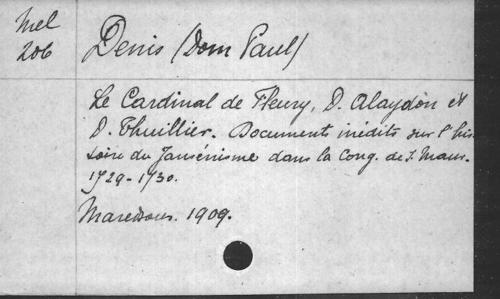 Mel
206
Denis (Dom Paul)
Le Cardinal de Fleury, D. Alaydon et
D. Thuillier. Documents inédits sur l'his-
toire du Jansénisme dans la Cong. de S. Maur.
1729-1730.
Maredsous. 1909.